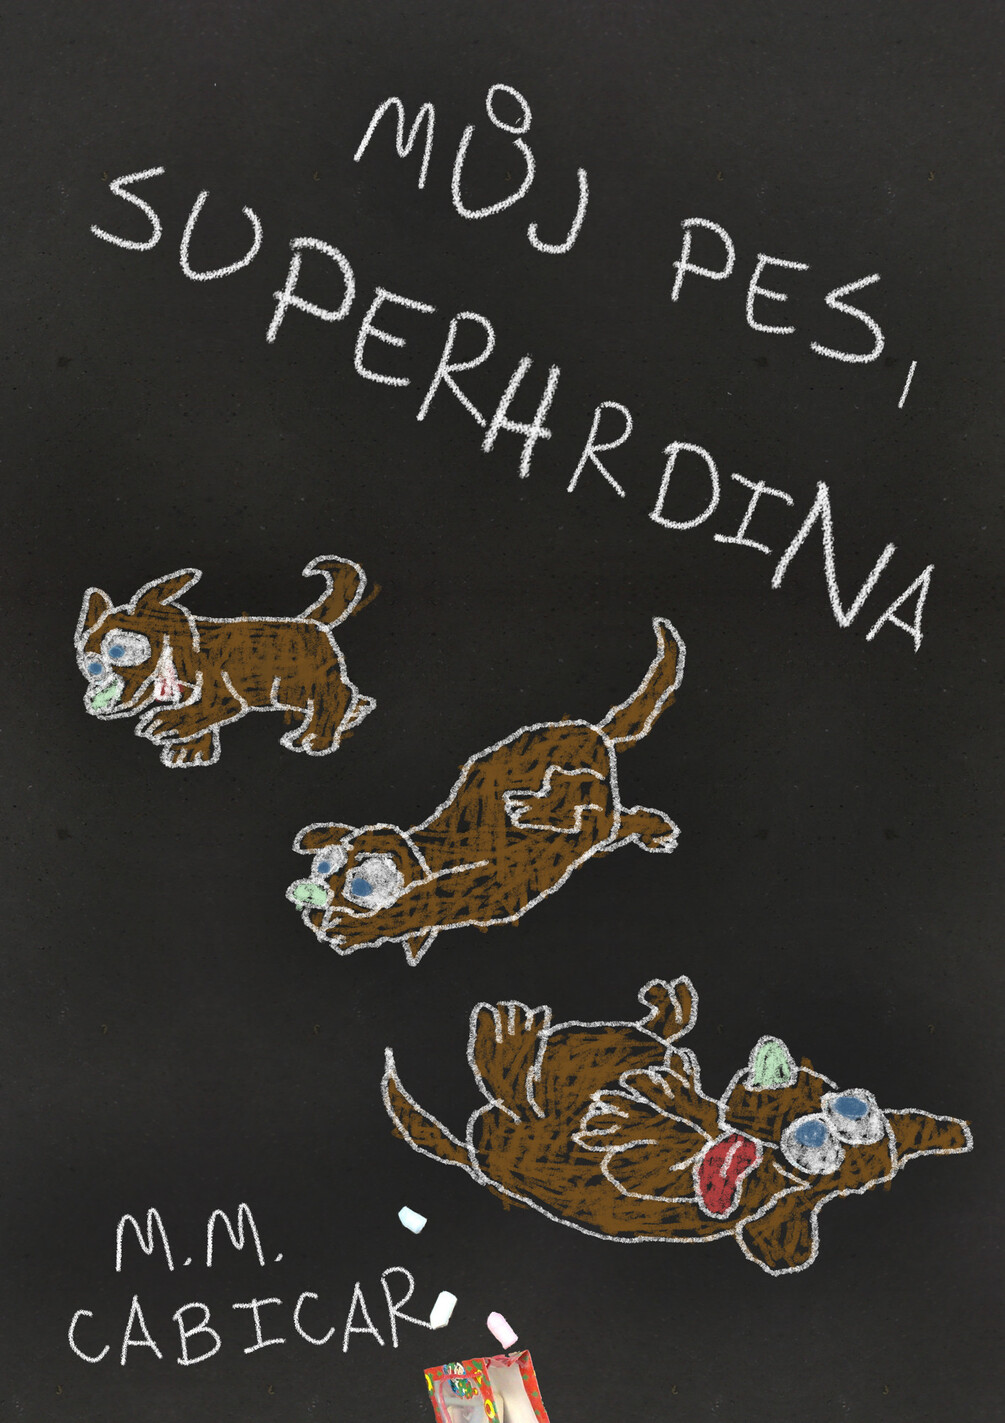 MŮJ PES,
SUPERHRDINA
M.M.
CABICAR